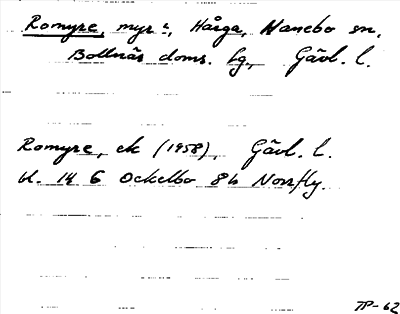 Romyre, myr ?, Hårga, Hanebo sn,
Bollnäs doms. fg, Gävl. l.
Romyre, ek (1958), Gävl. l.
bl. 14 G Ockelbo 8h Norrfly.
TP-62